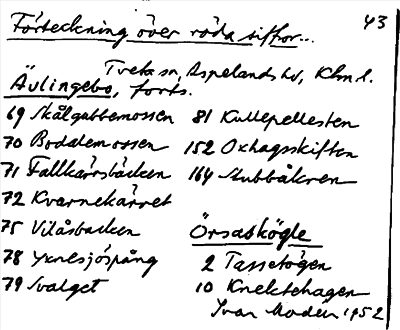 43
Förteckning över röda siffor...
Tveta sn, Aspelands hd, Klm l.
Älvlingebo, forts.
69 Skålgubbemossen
70 Boddemossen
71 Fallkärrsbäcken
72 Kvarnekärret
75 Vilåsbacken
78 Yxnesjöspång
79 Svalget
81 Kullepellesten
152 Oxhagsskiften
164 Stubbåkren
Örsaskögle
2 Tassetögen
10 Knektehagen
Ivar Modéer 1952